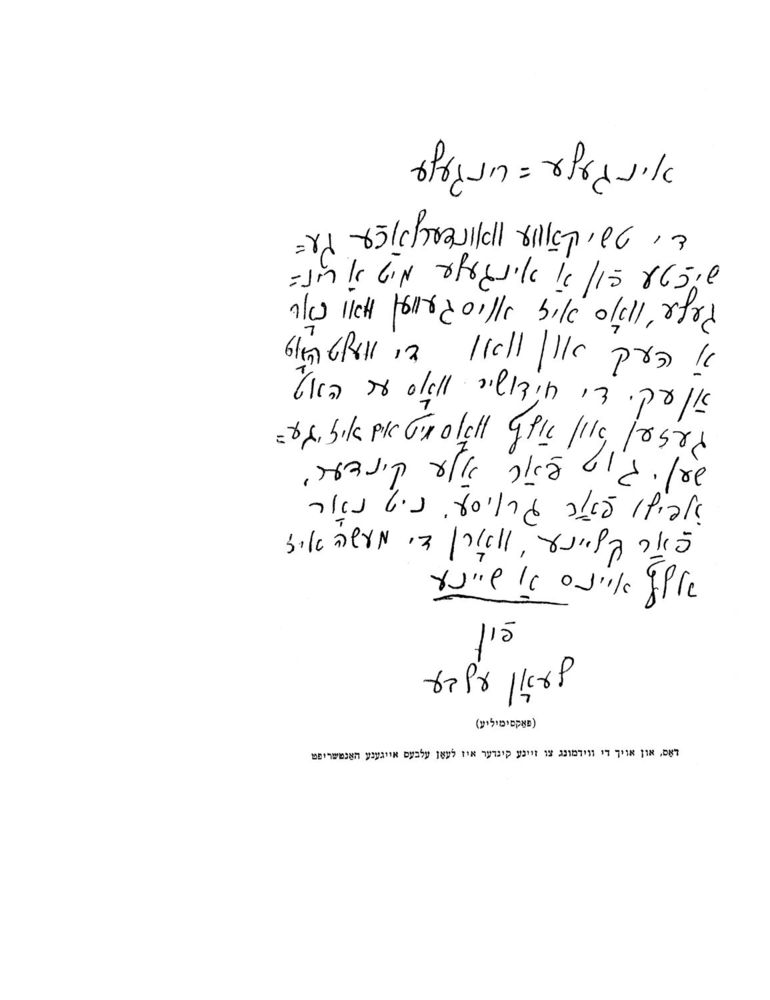 אינגעלע = רינגעלע
די טשיקאַווע וואונדערלאַכע גע=
שיכטע פֿון אַ אינגעלע מיט אַ רינ=
געלע, וואָס איז אויסגעווען וואו נאָר
אַ העק און וואו די וועלט האָט
אַן עק. די חידושים וואָס ער האט
געזען און אַלץ וואָס מיט אים איז גע=
שען. גוט פֿאַר אַלע קינדער,
אַפילו פֿאַר גרויסע, ניט נאָר
פֿאַר קליינע, וואָרן די מעשה איז
אַלץ איינס אַ שיינע
פֿון
לעאָן עלבע
(פאַקסימיליע)
דאָס, און אויך די ווידמונג צו זיינע קינדער איז לעאָן עלבעס אייגענע האַנטשריפט